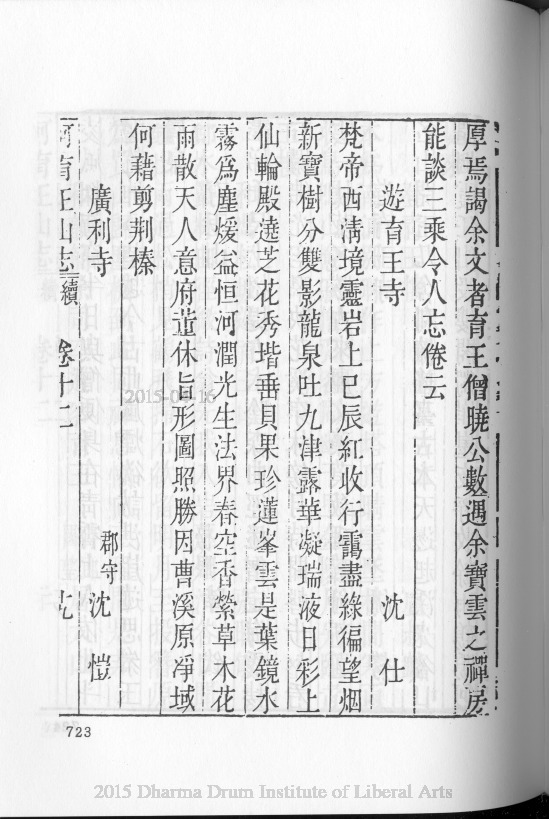 厚焉謁余文者育王僧曉公數遇余寶雲之禪房
能談三乘令人忘倦云
遊育王寺 沈仕
梵帝西淸境靈岩上巳辰紅收行靄盡綠徧望烟
新寶樹分雙影龍泉吐九津露華凝瑞液日彩上
仙輪殿遶芝花秀堦垂貝果珍蓮峯雲是葉鏡水
霧爲塵煖益恒河潤光生法界春空香縈草木花
雨散天人意府蓳休旨形圖照勝因曹溪原淨域
何藉剪荆榛
廣利寺 郡守沈愷
阿育王山志續 卷十二
723
2015-04-16
2015 Dharma Drum Institute of Liberal Arts